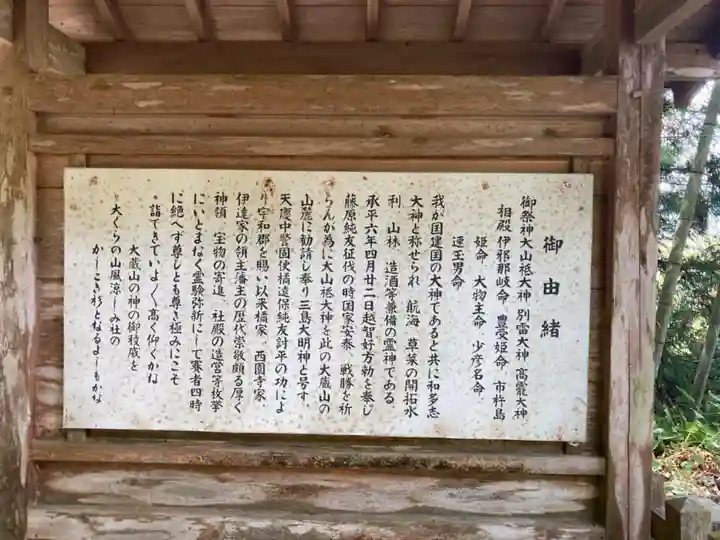 御由緒
御祭神大山祗大神 別雷大神 高龗大神
相殿 伊邪那岐命 豊受姫命 市杵島
姫命 大物主命 少彦名命
速玉男命
我が国建国の大神であると共に和多志
大神と称せられ 航海 草菜の開拓水
利 山林 造酒等兼備の霊神である
承平六年四月廿二日越智好方勅を奉じ
藤原純友征伐の時国家安泰 戦勝を祈
らんが為に大山祗大神を此の大蔵山の
山麓に勧請し奉り三島大明神と号す
天慶中警固使橘遠保純友討平の功によ
り宇和郡を賜い以来橘家、西園寺家、
伊達家の領主藩主の歴代崇敬頗る厚く
神領、宝物の寄進、社殿の造営等枚挙
にいとまなく霊験弥新にして賽者四時
に絶へず尊しとも尊き極みにこそ
詣できていよゝ高く仰ぐかな
大蔵山の神の御稜威を
大くらの山風涼しみ社の
かしこき杉となるよしもがな